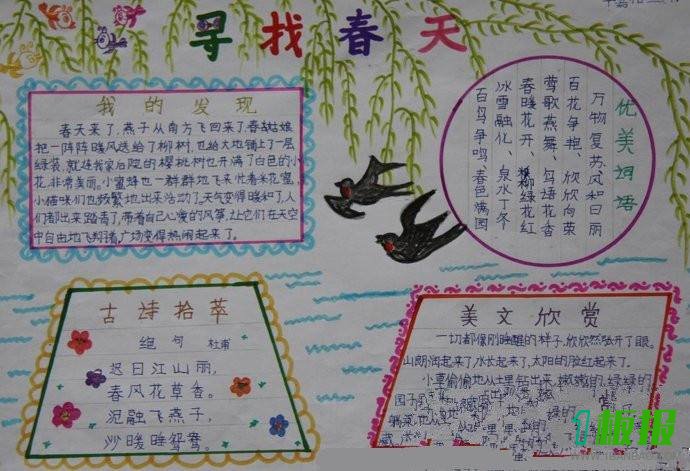 寻找春天
我的发现
春天来了,燕子从南方飞回来了,春姑娘
把一阵阵暖风送给了柳树,也给大地铺上了一层
绿装,就连我家后院的樱桃树也开满了白色的小
花,非常美丽。小蜜蜂也一群群地飞来忙着采花蜜,
小猫咪们也频繁地出来活动了天气变得暖和了,人
们都出来踏青了,带着自己心爱的风筝,让它们在天空
中自由地飞翔着,广场变得热闹起来了。
优美词语
万物复苏、风和日丽
百花争艳、欣欣向荣
莺歌燕舞、鸟语花香
春暖花开、柳绿花红
冰雪融化、泉水丁冬
百鸟争鸣、春色满园
古诗拾萃
绝句 杜甫
迟日江山丽,
春风花草香。
泥融飞燕子,
沙暖睡鸳鸯。
美文欣赏
一切都像刚睡醒的样子,欣欣然张开了眼。
山朗润起来了,水长起来了,太阳的脸红起来了。
小草偷偷地从土里钻出来,嫩嫩的,绿绿的
园子
1板报